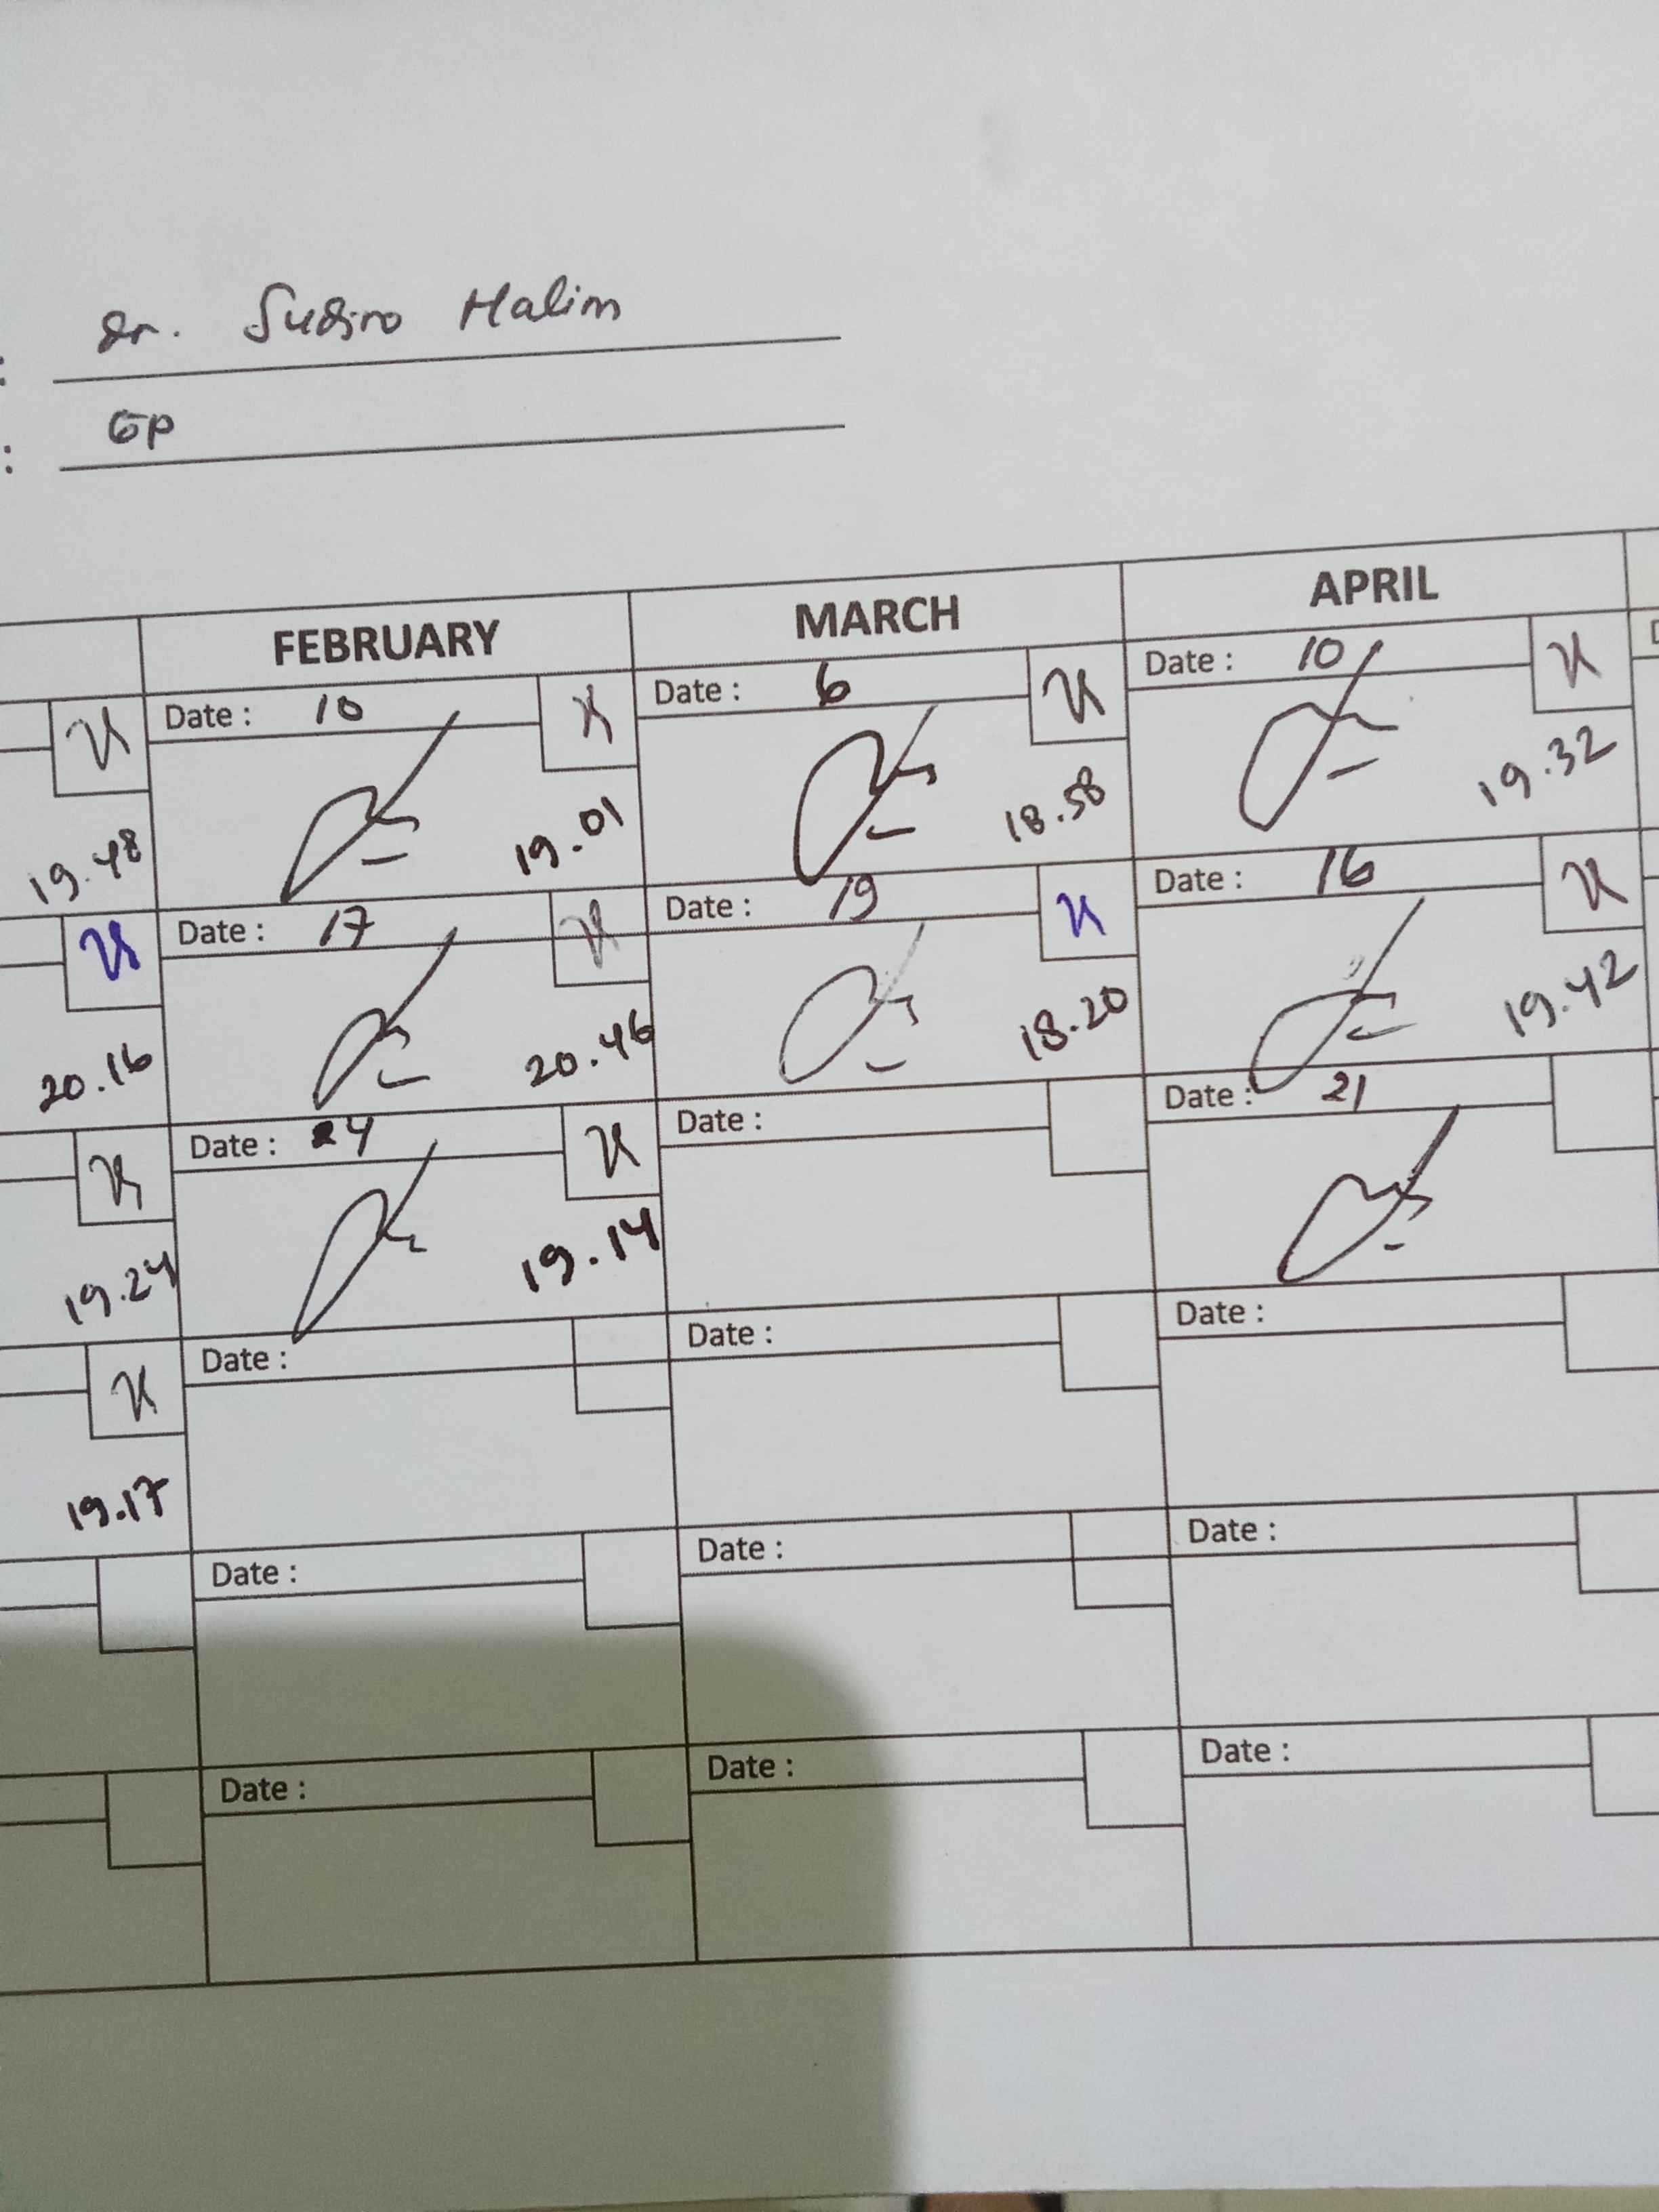 : dr. Sudiro Halim
: GP
FEBRUARY MARCH APRIL
Date : 10 Date : 6 Date : 10
19.48 19.01 18.58 19.32
Date : 17 Date : 19 Date : 16
20.16 20.46 18.20 19.42
Date : 24 Date : Date : 21
19.24 19.14
Date : Date : Date :
19.17
Date : Date : Date :
Date : Date : Date :